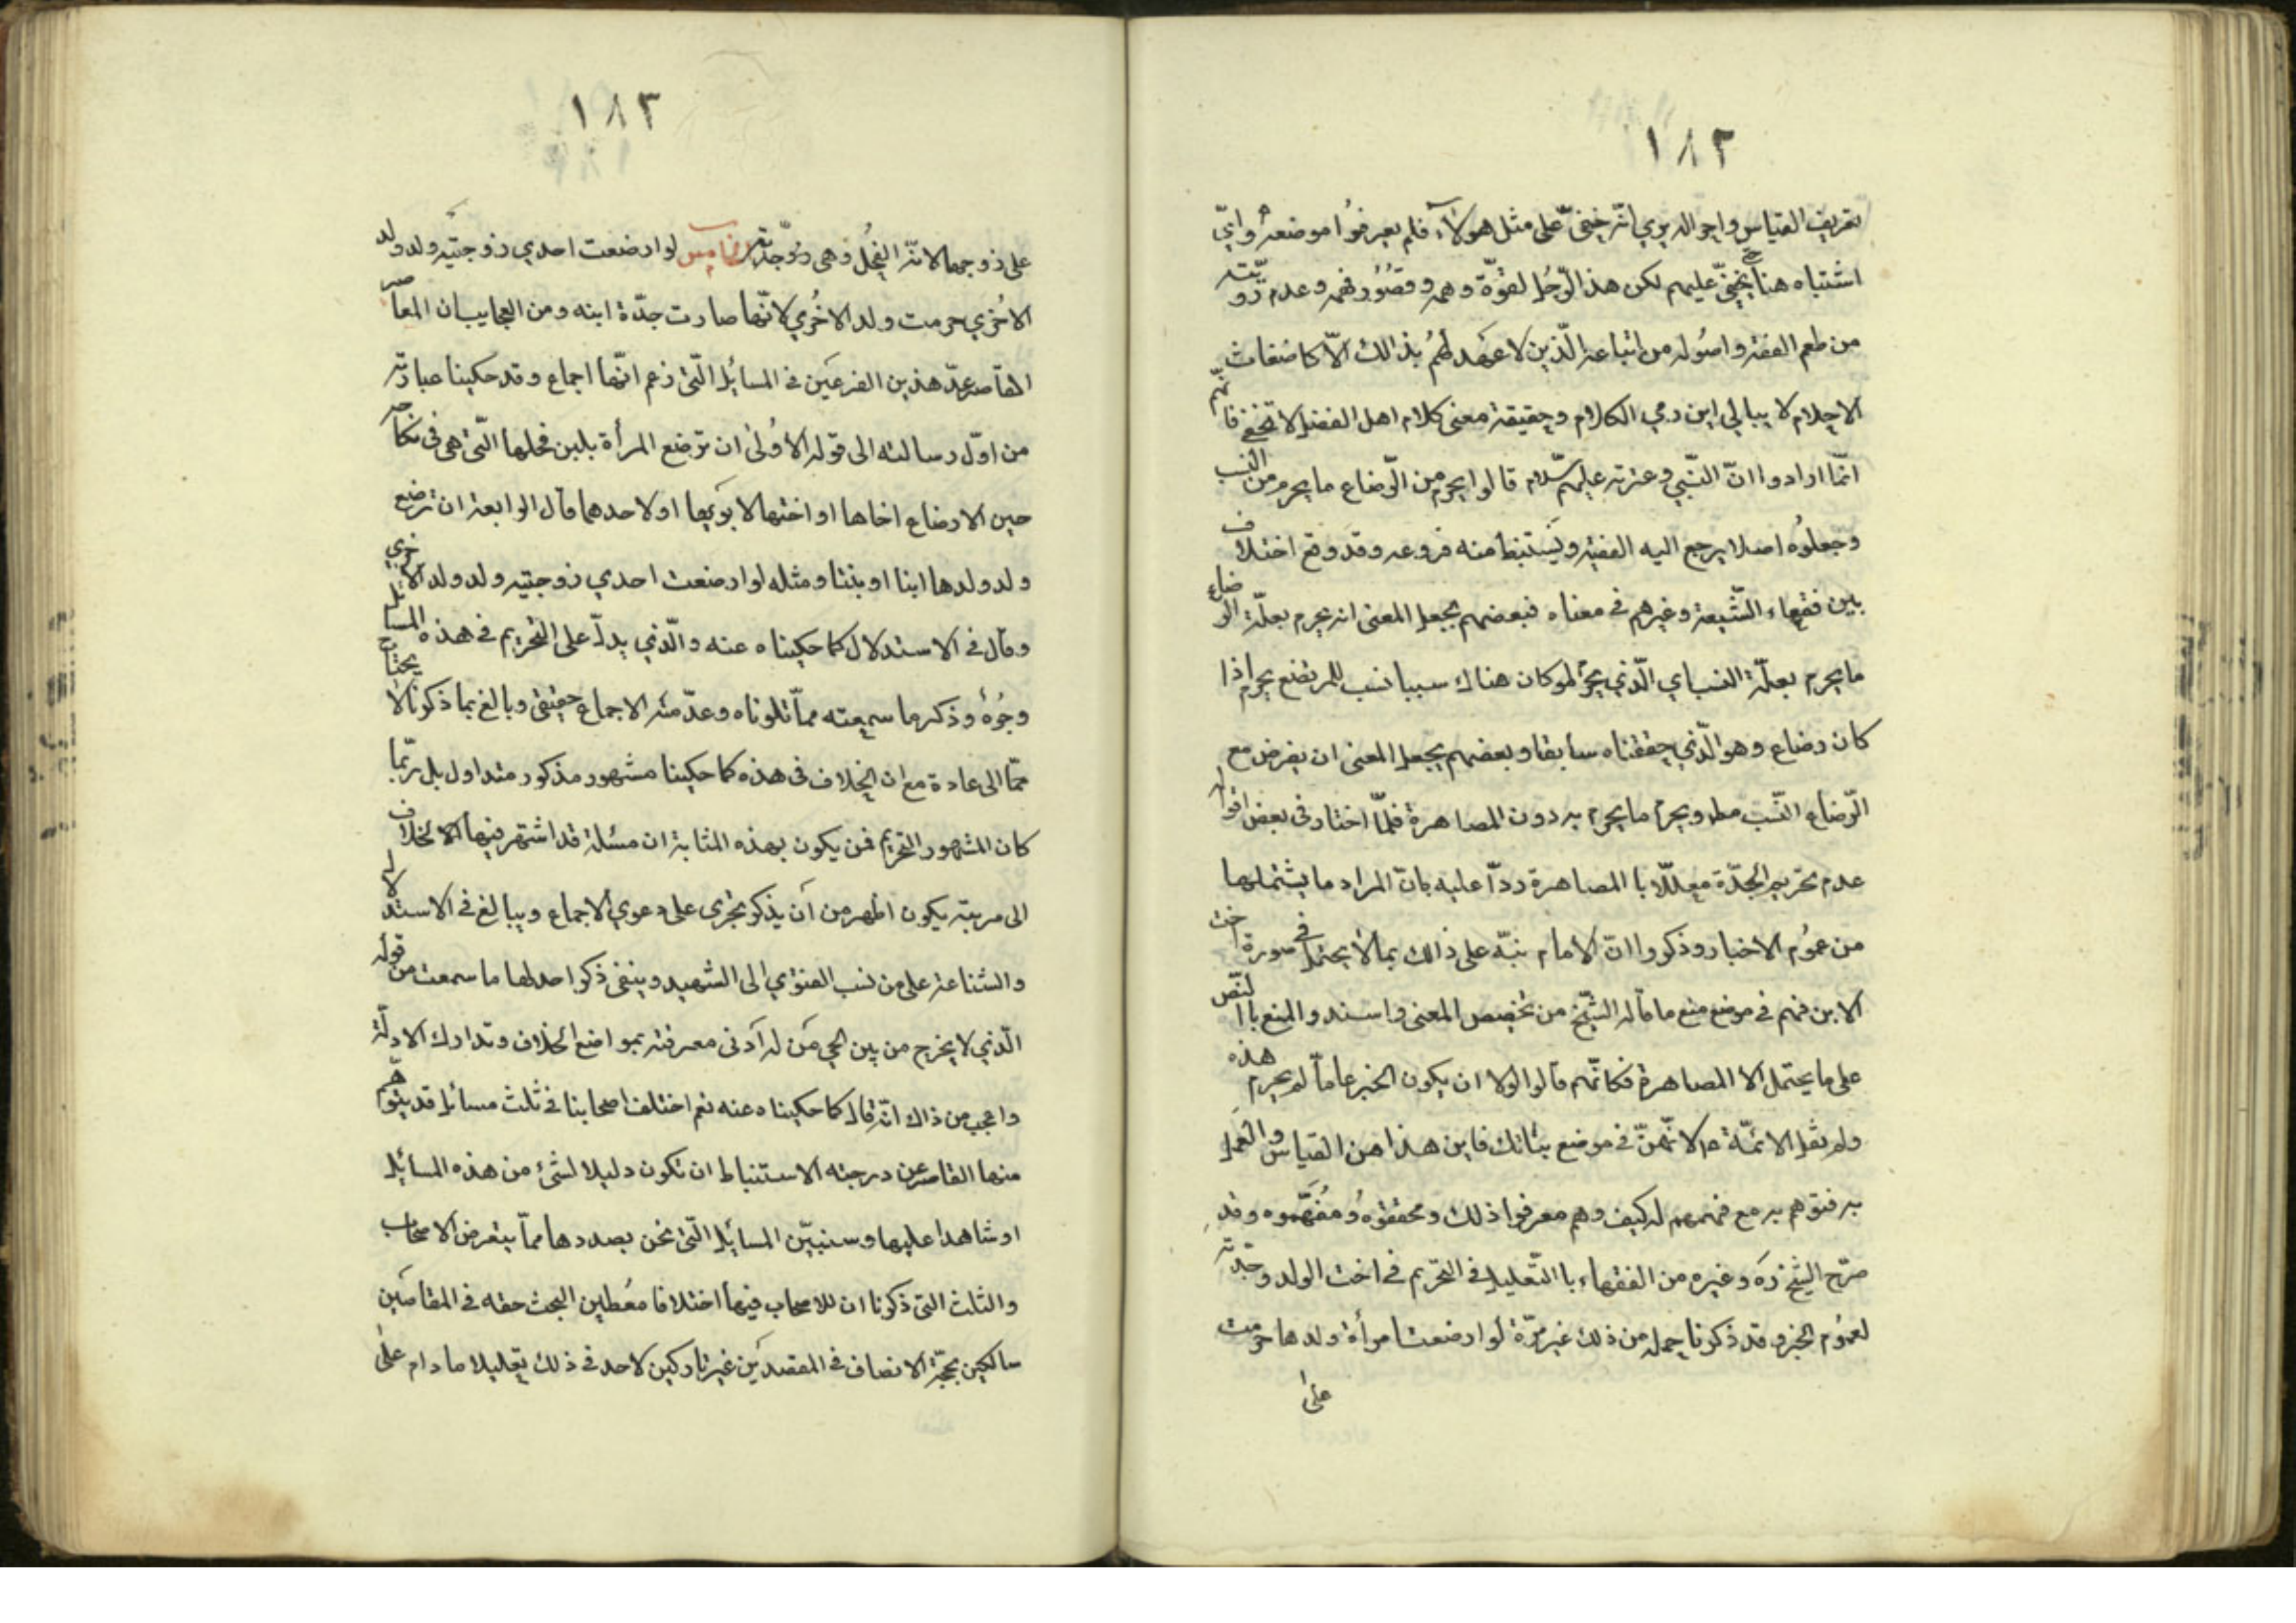 ١٨٢
تعريف القياس واحواله يري انّه خفيّ على مثل هولاء فلم يعرفوا موضعه وايّ
اشتباه هنا يخفيّ عليهم لكن هذا الرّجُل لقوّة وهمه وقصُور فهمه وعدم رويّته
من طعم الفقه واصُوله من اتباعه الّذين لا عهد لهُم بذالك الّا كاضغاث
الاحلام لا يبالي اين رمي الكلام وحقيقة معنى كلام اهل الفضل لا تخفى فانّهم
انمّا ارادوا انّ النّبي وعترته عليهم سّلام قالوا يحرم من الرّضاع ما يحرم من النسب
وجعلوُه اصلا يرجع اليه الفقيه ويستنبط منه فروعه وقد وقع اختلاف
بين فقهاء الشّيعة وغيرهم في معناه فبعضهم يجعل المعنى انه يحرم بعلّة الرضاع
ما يحرم بعلّة النسب اي الّذي يحرم لو كان هناك سببا نسب للمرتضع يحرم اذا
كان رضاع وهو الّذي حققناه سابقا وبعضهم يجعل المعنى ان يفرض مع
الرّضاع النّسب مط ويحرم ما يحرم به دون المصاهرة فلمّا اختار في بعض اقواله
عدم تحريم الجدّة معللّا با المصاهرة ردّا عليه بانّ المراد ما يشتملها
من عموُم الاخبار وذكروا انّ الامام نبّه على ذالك بما لا يحتمل في صورة اخت
الابن فهم في موضع منع ما قاله الشّيخ من تخصيص المعنى واسندوا المنع باالنّص
على ما يحتمل الا المصاهرة فكانّهم قالوا لولا ان يكون الخبر عاماً لم يحرم هذه
ولم يقل الائمّة ع لانّهنّ في موضع بناتك فاين هذا من القياس والعمل
به فتوهم به مع فهمهم له كيف وهم معرفوا ذلك ومحققوهُ ومُفهّموه وقد
صرّح الشّيخ ره وغيره من الفقهاء با التّعليل في التحريم في اخت الولد وجدّته
لعموُم الخبر وقد ذكرنا جمله من ذلك غير مرّة لو ارضعت امرأة ولدها حرمت
على
١٨٣
على زوجها لانّه الفحل وهي جدّته الخامس لو ارضعت احدي زوجتيه ولد ولد
الاخُري حرمت ولد الاخُري لانّها صارت جدّة ابنه ومن العجايب ان المعاصر
القاصر عدّ هذين الفرعين في المسائل الّتي زعم انّها اجماع وقد حكينا عبارته
من اوّل رسالته الى قوله الاوُلى ان ترضع المرأة بلبن فحلها الّتي هي في نكاحه
حين الارضاع اخاها او اختها لابويها او لاحدهما قال الرابعة ان ترضع
ولد ولدها ابنا او بنتا ومثله لو ارضعت احدي زوجتيه ولد ولد الاخري
وقال في الاستدلال كما حكيناه عنه والّذي يدلّ على التحريم في هذه المسائل
وجُوهُ وذكر ما سمعته ممّا تلوناه وعدّ منه الاجماع حقيقي وبالغ بما ذكرنا لا يحتاج
ممّا الى عادة مع ان الخلاف في هذه كما حكينا مشهور مذكور متداول بل ربّما
كان المشهور التحريم فمن يكون بهذه المثابة ان مسئلة قد اشتهر فيها الاختلاف
الى مرتبة يكون اظهر من ان يذكر يجري على دعوي الاجماع ويبالغ في الاستدلال
والشناعة على من نسب الفتوي الى الشهيد وينفي ذكر احد لها ما سمعت من قوله
الّذي لا يخرج من بين الحي من له ادنى معرفته بمواضع الخلاف وتدارك الادلّة
واعجب من ذالك انّه قال كما حكيناه عنه نعم اختلف اصحابنا في ثلث مسائل قد يتوهّم
منها القاصر عن درجته الاستنباط ان تكون دليلا لشئ من هذه المسائل
او شاهدا عليها وسنبيّن المسائل الّتي نحن بصددها ممّا يتعرض الاصحاب
والثلث التي ذكرنا ان للاصحاب فيها اختلافا معُطين البحث حقه في المقامين
سالكين محجّة الانصاف في المقصدين غير تاركين لاحد في ذلك تعليلا ما دام على